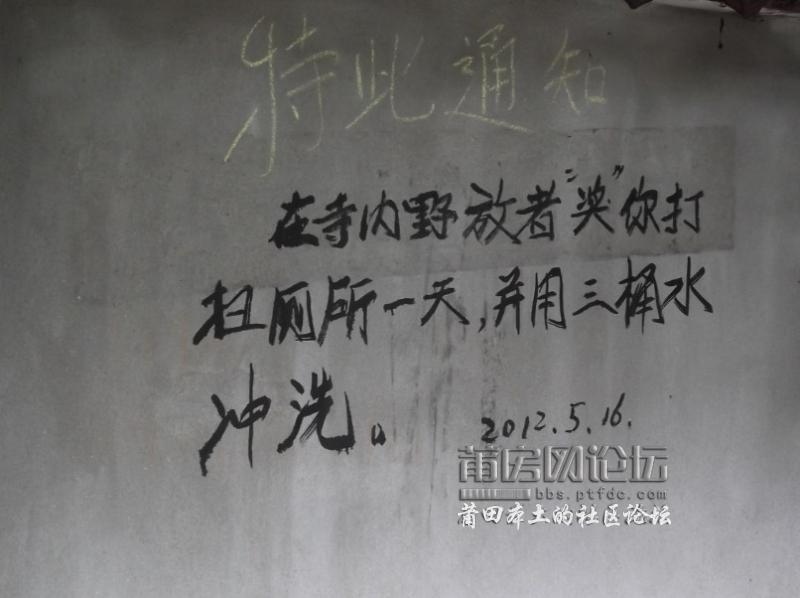 特此通知
在寺内野放者"奖"你打
扫厕所一天,并用三桶水
冲洗。
2012.5.16.
莆房网论坛
bbs.ptfdc.com
莆田本土的社区论坛